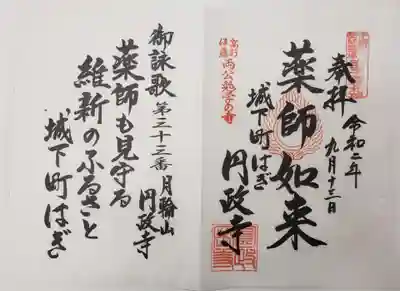 奉拝
令和二年
九月十三日
薬師如来
城下町はぎ
円政寺
高杉
伊藤
両公勉学の寺
御詠歌
第三十三番
月輪山
円政寺
薬師も見守る
維新のふるさと
城下町はぎ